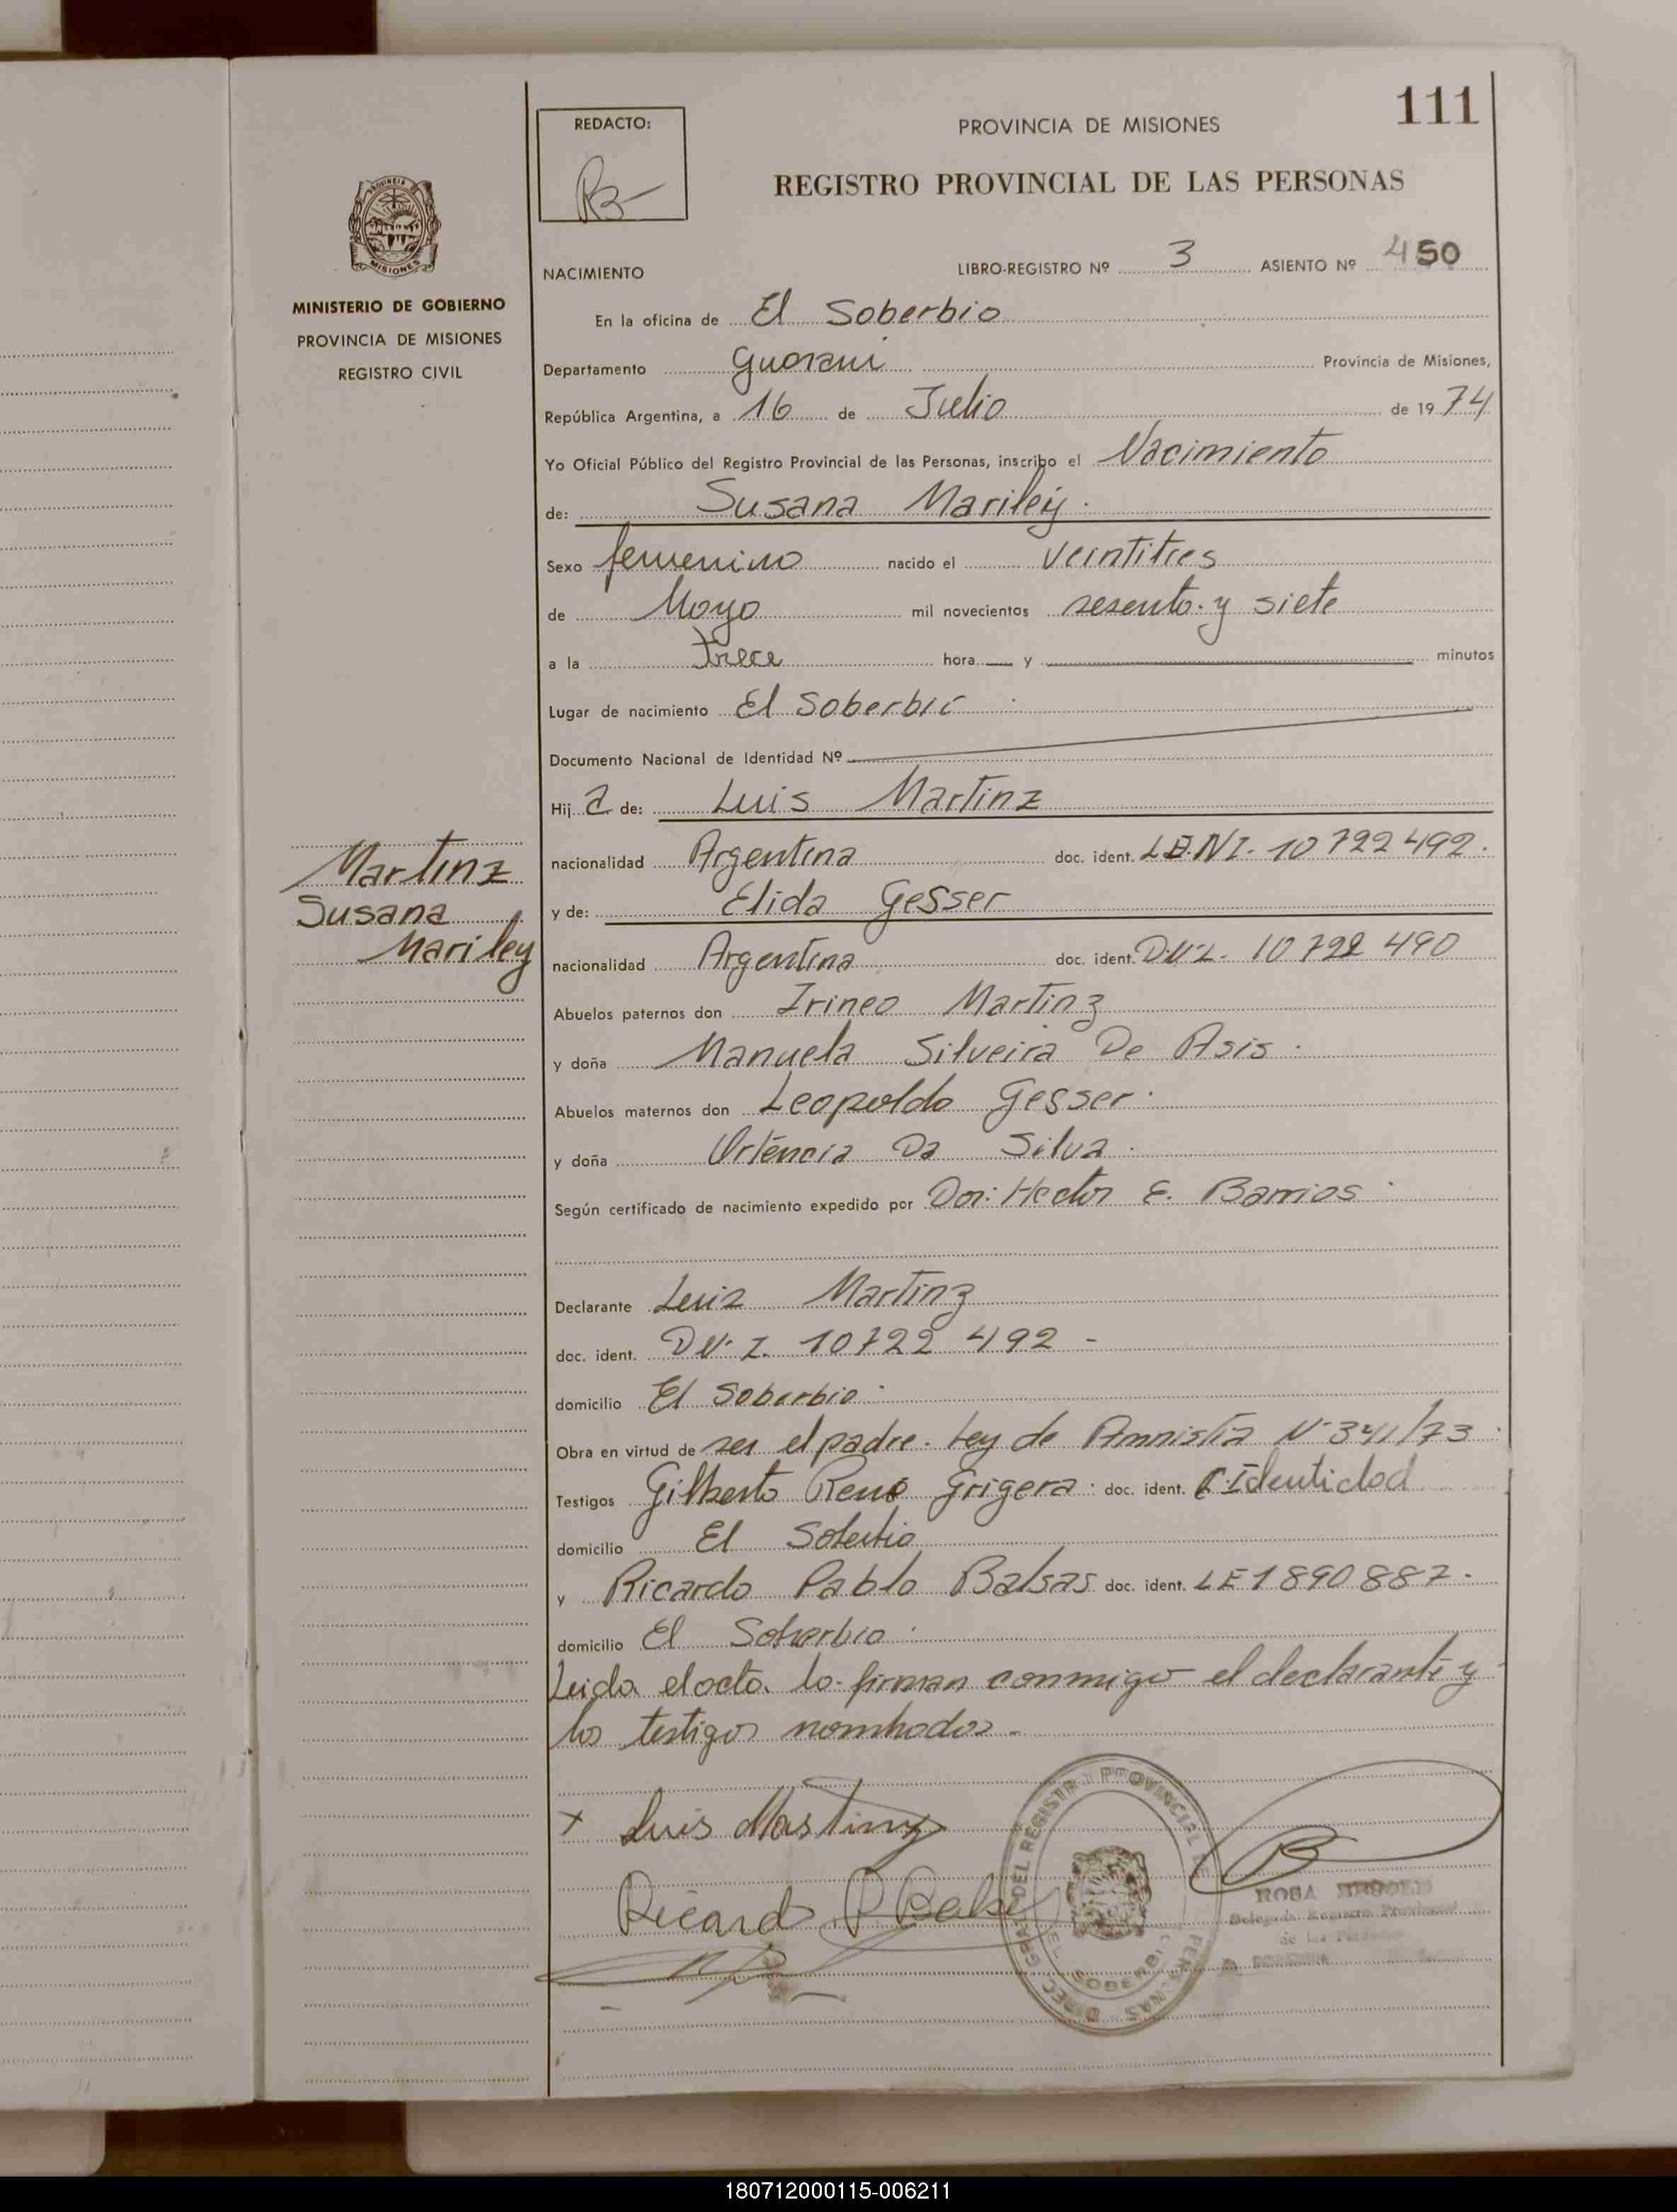 111
REDACTO:
PROVINCIA DE MISIONES
REGISTRO PROVINCIAL DE LAS PERSONAS
PROVINCIA DE
MISIONES
MINISTERIO DE GOBIERNO
PROVINCIA DE MISIONES
REGISTRO CIVIL
NACIMIENTO
LIBRO-REGISTRO Nº 3 ASIENTO Nº 450
En la oficina de El Soberbio
Departamento Guarani Provincia de Misiones,
República Argentina, a 16 de Julio de 1974
Yo Oficial Público del Registro Provincial de las Personas, inscribo el Nacimiento
de: Susana Mariley.
Sexo femenino nacido el veintitres
de Mayo mil novecientos sesenta y siete
a la trece hora y minutos
Lugar de nacimiento El Soberbio
Documento Nacional de Identidad Nº
Hij a de: Luis Martinz
nacionalidad Argentina doc. ident. 10722492.
y de: Elida Gesser
nacionalidad Argentina doc. ident. D.N.I. 10722490
Martinz
Susana
Mariley
Abuelos paternos don Irineo Martinz
y doña Manuela Silveira De Asis.
Abuelos maternos don Leopoldo Gesser.
y doña Orténcia Da Silva.
Según certificado de nacimiento expedido por Dor: Hector E. Barrios
Declarante Luiz Martinz
doc. ident. DN.I. 10722492 -
domicilio El Soberbio.
Obra en virtud de ser el padre. Ley de Amnistia Nº 341/73
Testigos Gilberto René Grigera. doc. ident. C. Identidad
domicilio El Soberbio
y Ricardo Pablo Balsas doc. ident. LE 1890887.
domicilio El Soberbio.
Leida el acta. lo firman conmigo el declarante y
los testigos nombrados.
x Luis Martinz
Ricardo P Balsas
DIREC GRAL DEL REGISTRO PROVINCIAL DE PERSONAS
EL SOBERBIO
ROSA
Delegada Registro Provincial
de las Personas
180712000115-006211